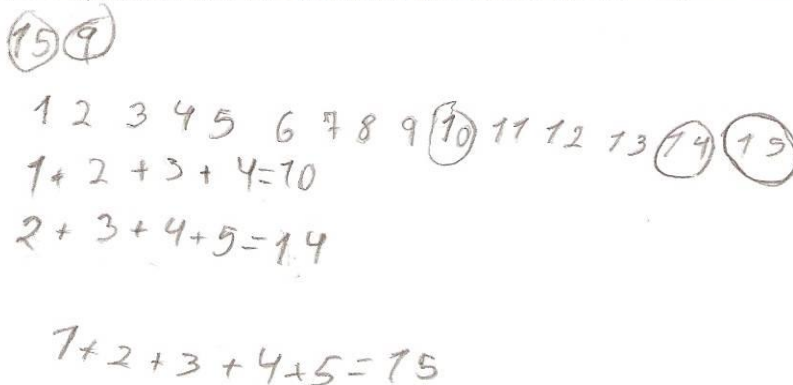 15 9
1 2 3 4 5 6 7 8 9 10 11 12 13 14 15
1+2+3+4=10
2+3+4+5=14
1+2+3+4+5=15